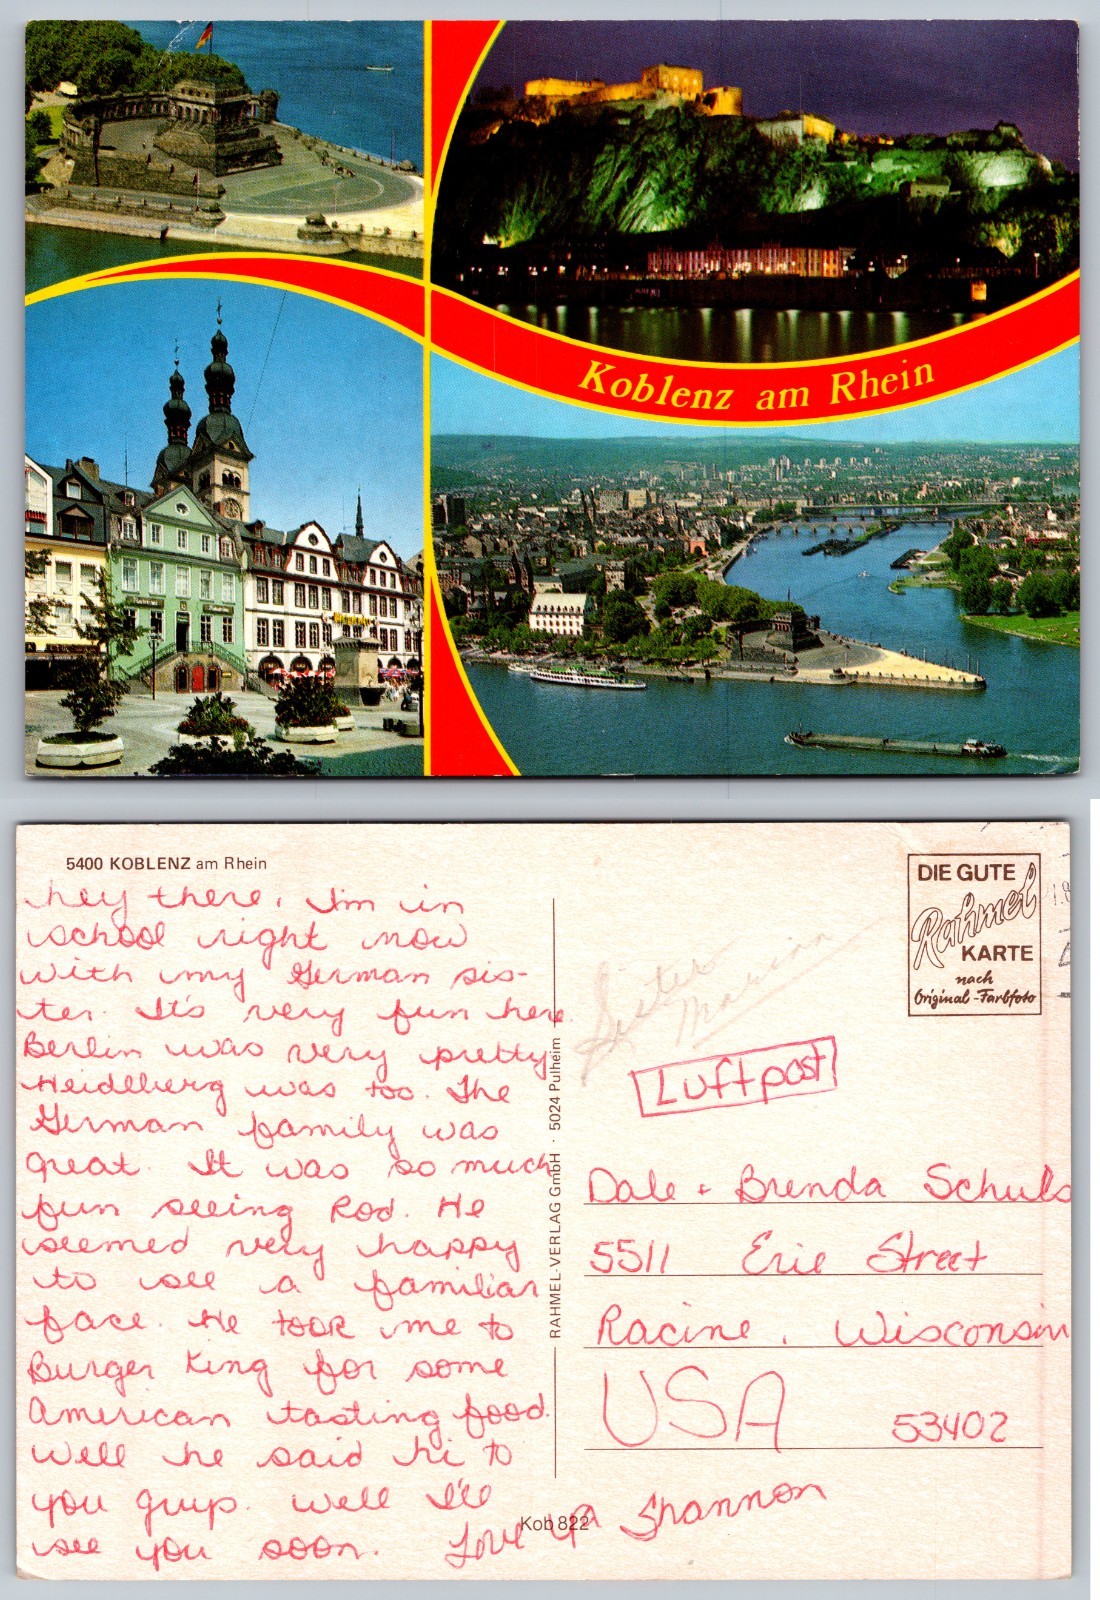 Koblenz am Rhein
5400 KOBLENZ am Rhein
hey there, I'm in
school right now
with my German sis-
ter. It's very fun here.
Berlin was very pretty
Heidlberg was too. The
German family was
great. It was so much
fun seeing Rod. He
seemed very happy
to see a familiar
face. He took me to
Burger King for some
American tasting food.
Well he said hi to
you guys. Well I'll
see you soon. Love ya Shannon
RAHMEL-VERLAG GmbH · 5024 Pulheim
Kob 822
DIE GUTE
Rahmel
KARTE
nach
Original-Farbfoto
Sister
Luftpost
Dale + Brenda Schuls
5511 Erie Street
Racine, Wisconsin
USA 53402